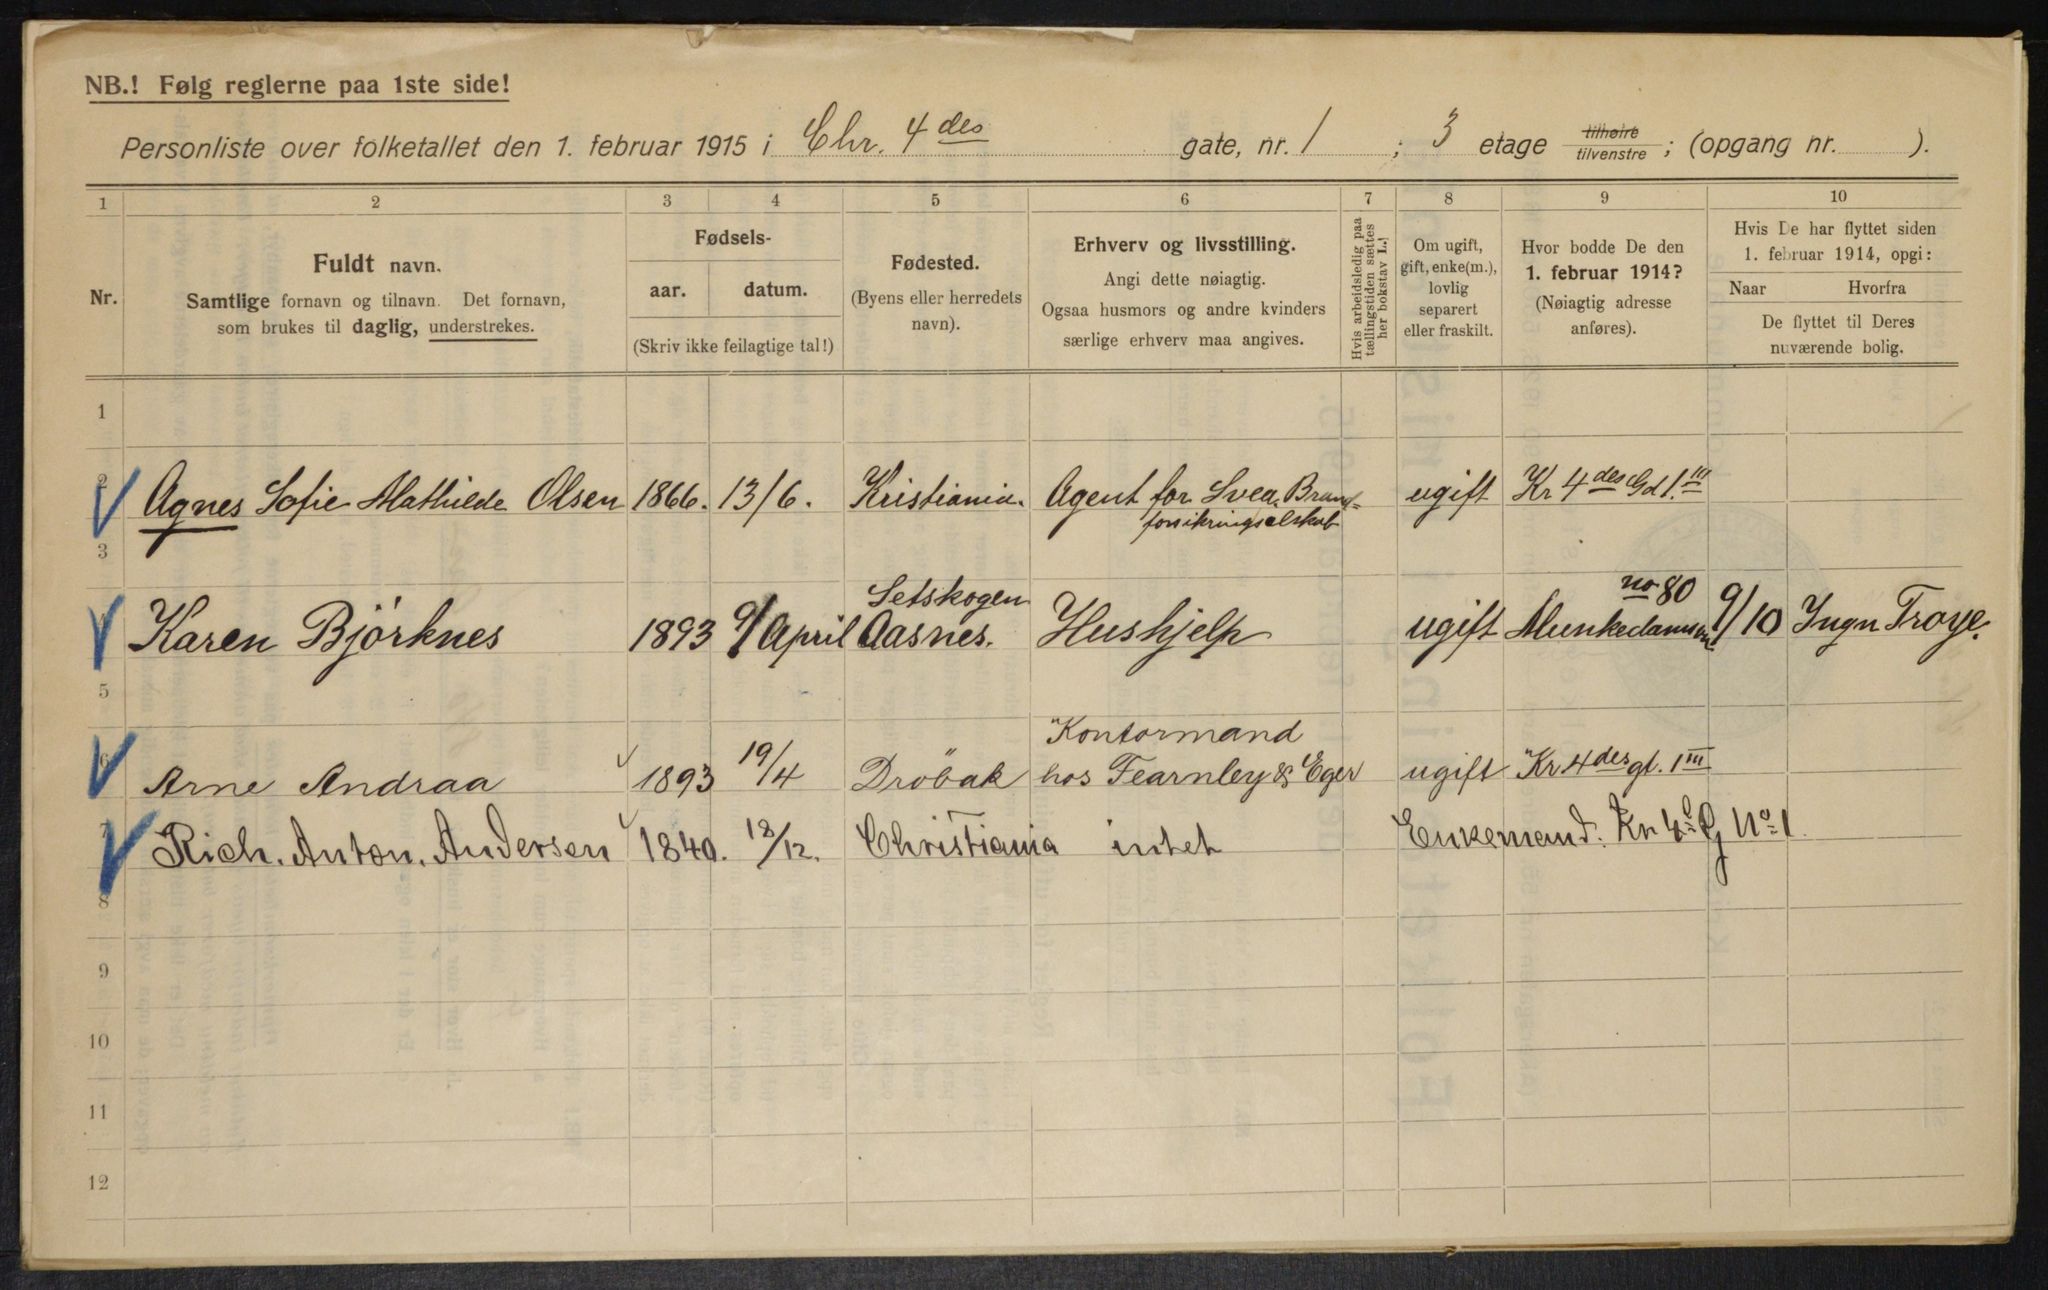 NB.! Følg reglerne paa 1ste side!
Personliste over folketallet den 1. februar 1915 i Chr. 4des gate, nr. 1 ; 3 etage tilhøire tilvenstre ; (opgang nr. ).
1 2 3 4 5 6 7 8 9 10
Nr.
Fuldt navn.
Samtlige fornavn og tilnavn. Det fornavn,
som brukes til daglig, understrekes.
Fødsels-
aar. datum.
(Skriv ikke feilagtige tal!)
Fødested.
(Byens eller herredets
navn).
Erhverv og livsstilling.
Angi dette nøiagtig.
Ogsaa husmors og andre kvinders
særlige erhverv maa angives.
Hvis arbeidsledig paa
tællingstiden sættes
her bokstav L.!
Om ugift,
gift, enke(m.),
lovlig
separert
eller fraskilt.
Hvor bodde De den
1. februar 1914?
(Nøiagtig adresse
anføres).
Hvis De har flyttet siden
1. februar 1914, opgi:
Naar Hvorfra
De flyttet til Deres
nuværende bolig.
1
2 Agnes Sofie Mathilde Olsen 1866. 13/6. Kristiania. Agent for Svea Brand= ugift Kr 4des Gd 1.III
forsikringselskab
3
no 80
Setskogen
Karen Björknes 1893 9/April Aasnes. Hushjelp ugift Munkedamsvn 9/10 Ingn Troye.
5
Kontormand
6 Arne Andraa 1893 19/4 Dröbak hos Fearnley & Eger ugift Kr 4des gt. 1III
7 Rich. Anton. Andersen 1840. 18/12. Christiania intet Enkemand. Kr 4d G No 1
8
9
10
11
12